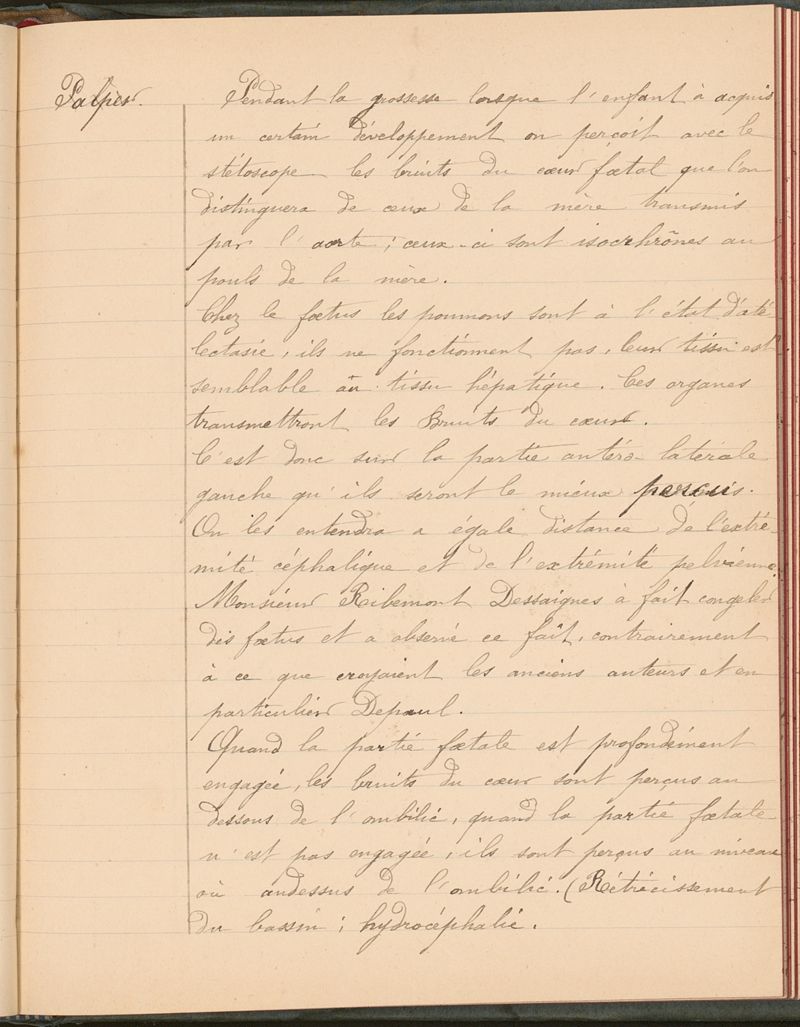 Palper.
Pendant la grossesse lorsque l'enfant à acquis
un certain développement on perçoit avec le
stétoscope les bruits du cœur fœtal que l'on
distinguera de ceux de la mère transmis
par l'aorte; ceux-ci sont isocrhrônes au
pouls de la mère.
Chez le fœtus les poumons sont à l'état d'até
lectasie, ils ne fonctionnent pas, leur tissu est
semblable au tissu hépatique. Ces organes
transmettront les Bruits du cœur.
C'est donc sur la partie antéro latérale
gauche qu'ils seront le mieux perçus.
On les entendra a égale distance de l'extré-
mité céphalique et de l'extrémité pelvienne.
Monsieur Ribemont Dessaignes à fait congeler
des fœtus et a observé ce fait, contrairement
à ce que croyaient les anciens auteurs et en
particulier Depaul.
Quand la partie fœtale est profondément
engagée, les bruits du cœur sont perçus au
dessous de l'ombilic, quand la partie fœtale
n'est pas engagée, ils sont perçus au niveau
où audessus de l'ombilic. (Rétrécissement
du bassin; hydrocéphalie.